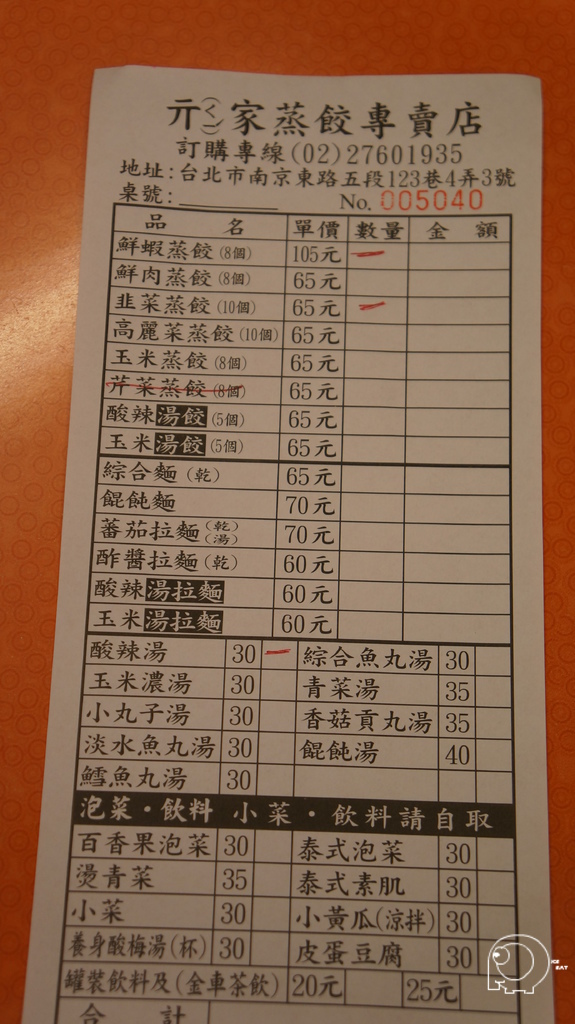 亓(ㄑㄧˊ)家蒸餃專賣店
訂購專線(02)27601935
地址:台北市南京東路五段123巷4弄3號
桌號: No. 005040
品名 單價 數量 金額
鮮蝦蒸餃(8個) 105元 一
鮮肉蒸餃(8個) 65元
韭菜蒸餃(10個) 65元 一
高麗菜蒸餃(10個) 65元
玉米蒸餃(8個) 65元
芹菜蒸餃(8個) 65元
酸辣湯餃(5個) 65元
玉米湯餃(5個) 65元
綜合麵(乾) 65元
餛飩麵 70元
蕃茄拉麵(乾)(湯) 70元
酢醬拉麵(乾) 60元
酸辣湯拉麵 60元
玉米湯拉麵 60元
酸辣湯 30 一 綜合魚丸湯 30
玉米濃湯 30 青菜湯 35
小丸子湯 30 香菇貢丸湯 35
淡水魚丸湯 30 餛飩湯 40
鱈魚丸湯 30
泡菜·飲料 小菜·飲料請自取
百香果泡菜 30 泰式泡菜 30
燙青菜 35 泰式素肌 30
小菜 30 小黃瓜(涼拌) 30
養身酸梅湯(杯) 30 皮蛋豆腐 30
罐裝飲料及(金車茶飲) 20元 25元
合計
ICE
EAT